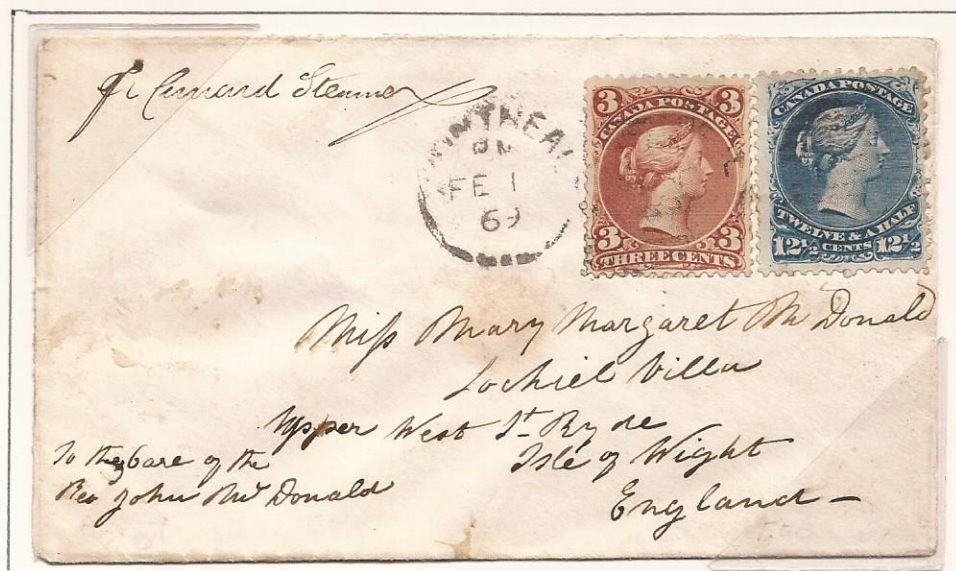 Pr Cunard Steamer
MONTREAL
PM
FE 1
69
3 3
CANADA POSTAGE
3 3
THREE CENTS
CANADA POSTAGE
TWELVE & A HALF
12½ CENTS 12½
Miss Mary Margaret McDonald
Lochiel Villa
Upper West St. Ryde
Isle of Wight
England
To the Care of the
Rev John McDonald